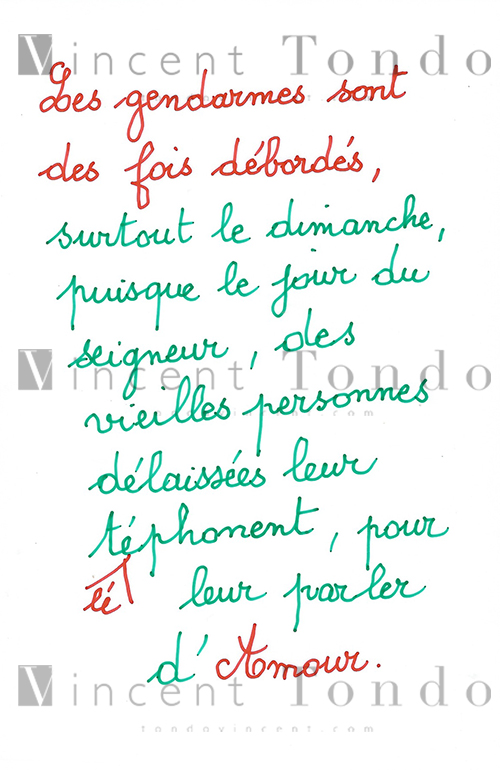 Vincent Tondo
Les gendarmes sont
des fois débordés,
surtout le dimanche,
puisque le jour du
seigneur, des
Vincent Tondo
vieilles personnes
délaissées leur
téphonent, pour
lé leur parler
d'Amour.
Vincent Tondo
tondovincent.com